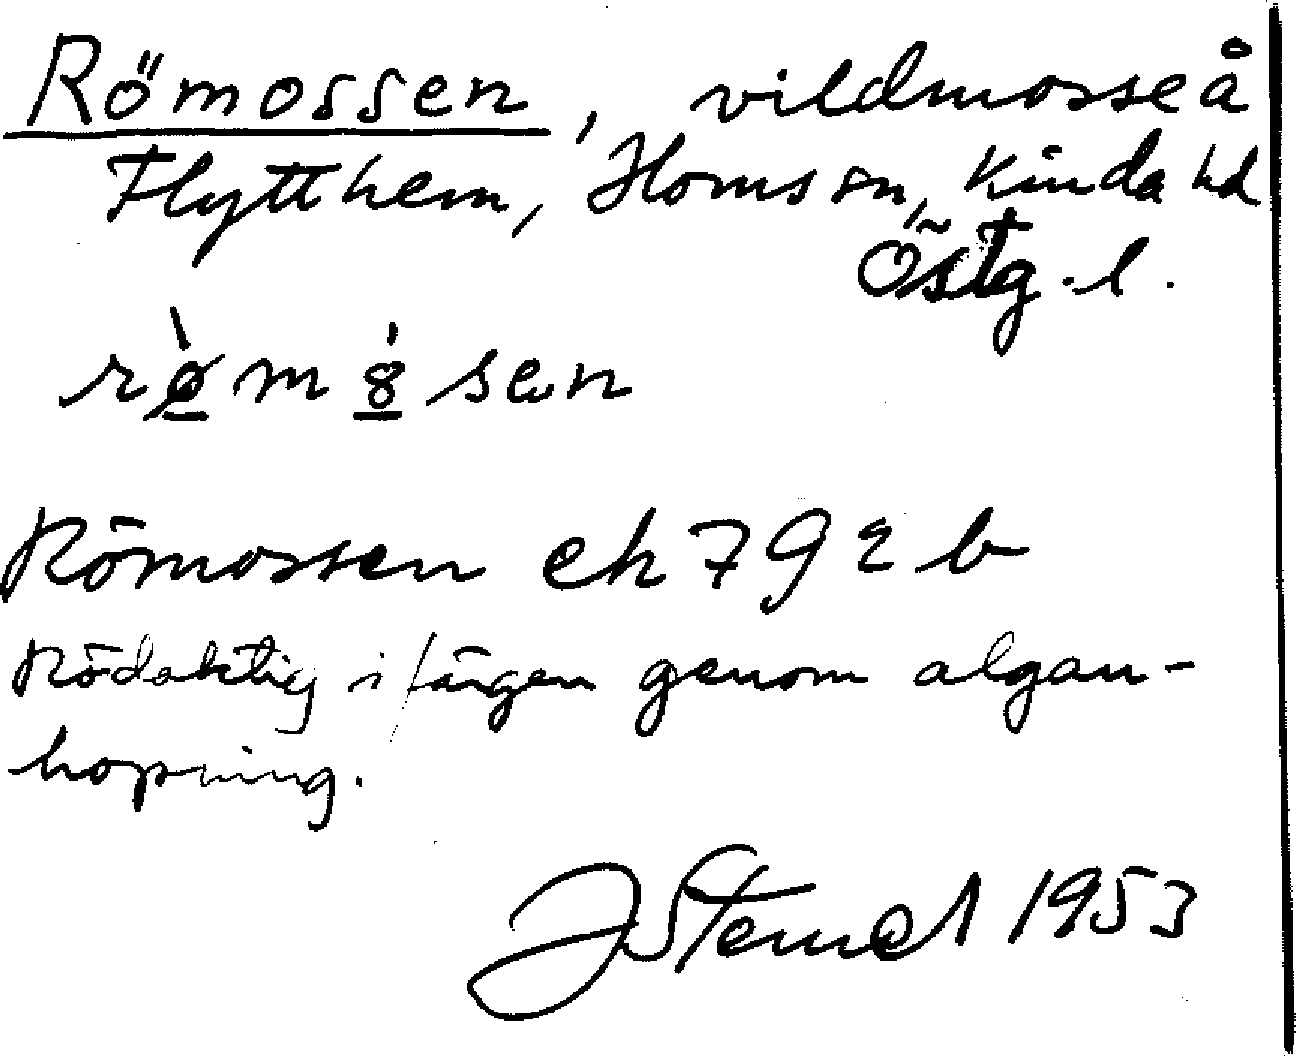 Römossen, vildmosse å
Flytthem, Horns sn, Kinda hd
Östg. l.
rø̀m8̍sen
Römossen ek 79 2 b
Rödaktig i färgen genom algan-
hopning.
1953